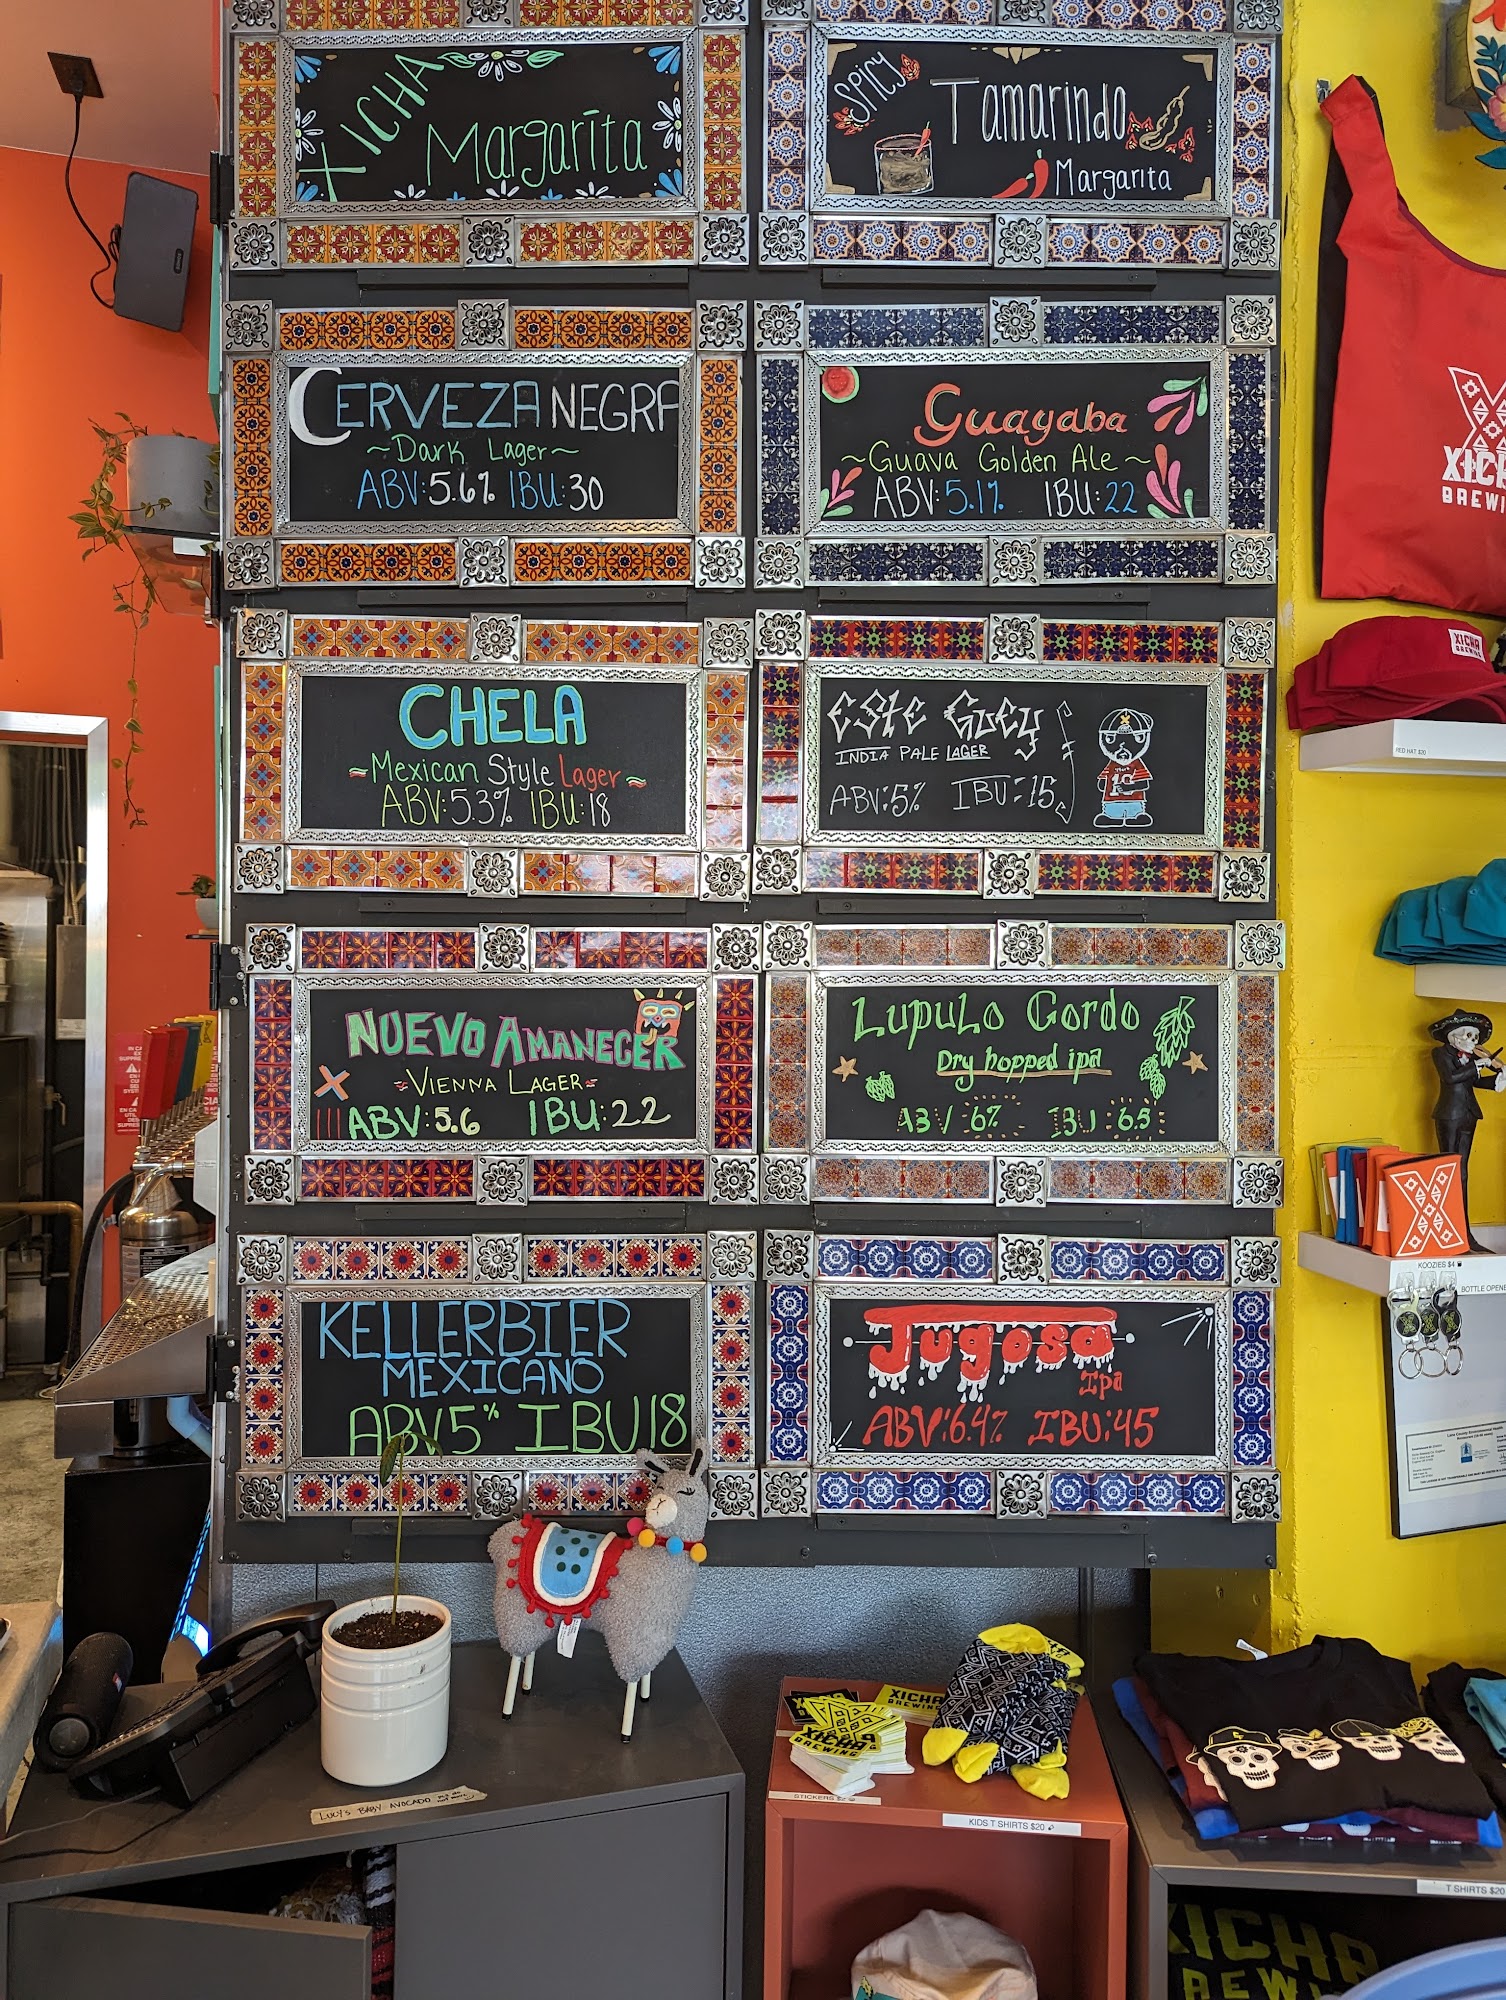 XICHA
Margarita
Spicy
Tamarindo
Margarita
CERVEZA NEGRA
~Dark Lager~
ABV:5.6% IBU:30
Guayaba
~Guava Golden Ale~
ABV:5.1% IBU:22
CHELA
~Mexican Style Lager~
ABV:5.3% IBU:18
ESTE GUEY
INDIA PALE LAGER
ABV:5% IBU:15
NUEVO AMANECER
VIENNA LAGER
ABV:5.6 IBU:22
LUPULO GORDO
Dry hopped ipa
ABV 6% IBU:65
KELLERBIER
MEXICANO
ABV5% IBU18
Jugosa
Ipa
ABV:6.4% IBU:45
XICHA
BREWI
XICHA
BREWING
RED HAT $20
KOOZIES $4
BOTTLE OPENE
LUCY'S BABY AVOCADO
XICHA
BREWING
XICHA
BREWING
STICKERS
KIDS T SHIRTS $20
T SHIRTS $20
XICHA
BREWI